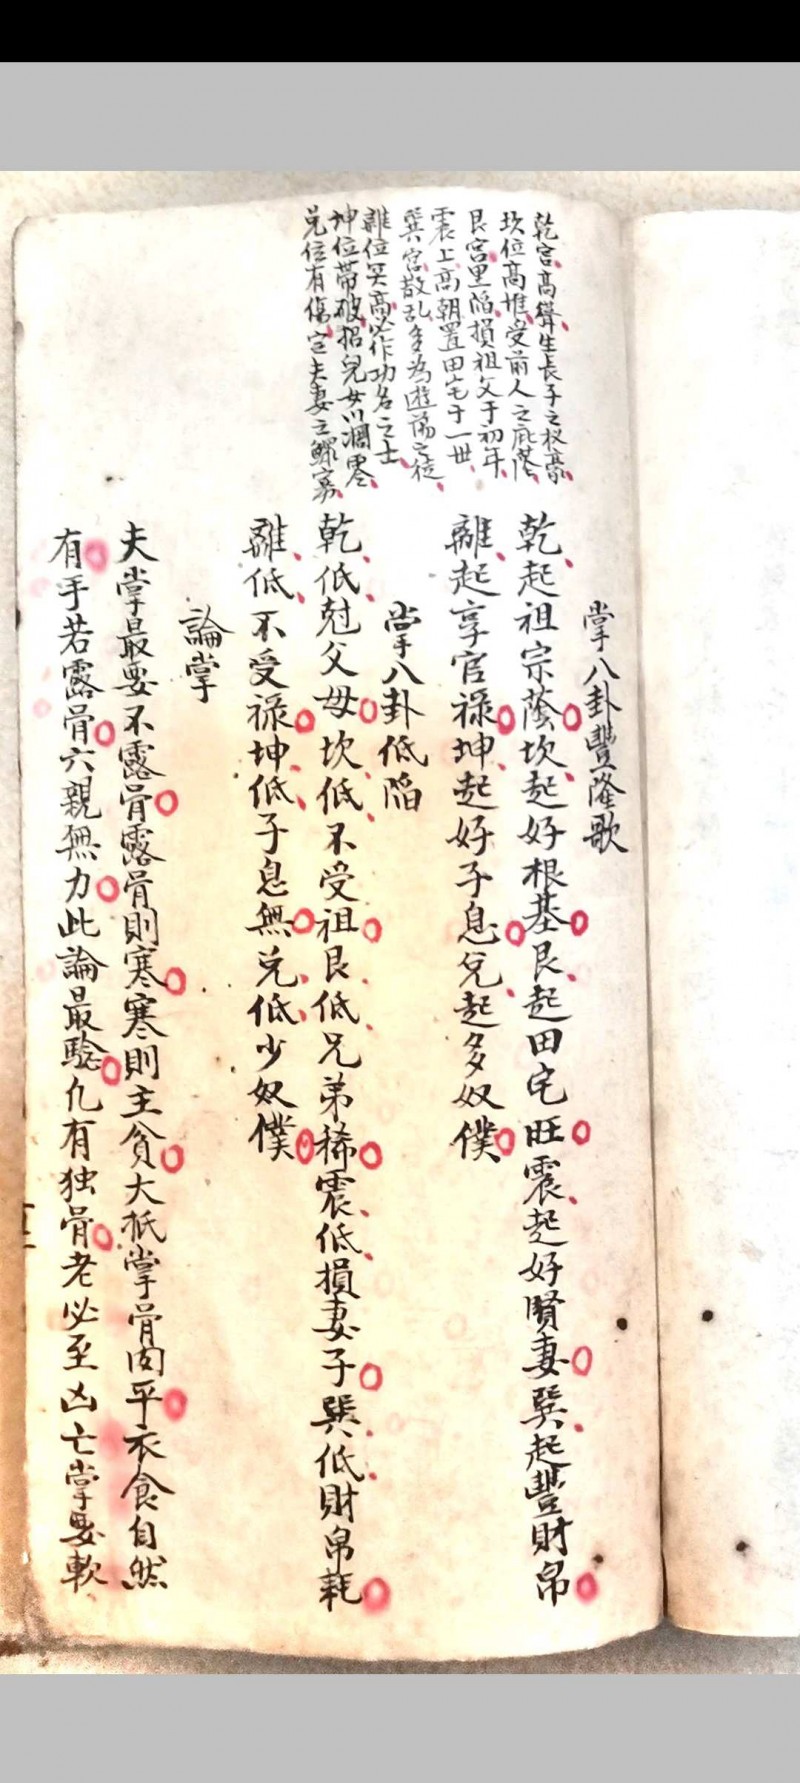 乾宫高聳生長子之权豪
坎位高堆受前人之庇䕃
艮宫黑陷損祖父于初年
震上高朝置田宅于一世
巽宫散乱多為遊荡之徒
離位突高必作功名之士
坤位带破招兒女以凋零
兑位有傷定夫妻之鰥寡
掌八卦豐隆歌
乾起祖宗蔭坎起好根基艮起田宅旺震起好賢妻巽起豐財帛
離起享官禄坤起好子息兌起多奴僕
掌八卦低陷
乾低尅父母坎低不受祖艮低兄弟稀震低損妻子巽低財帛耗
離低不受禄坤低子息無兑低少奴僕
論掌
夫掌最要不露骨露骨則寒寒則主貧大抵掌骨肉平衣食自然
有手若露骨六親無力此論最騐凢有独骨老必至凶亡掌要軟